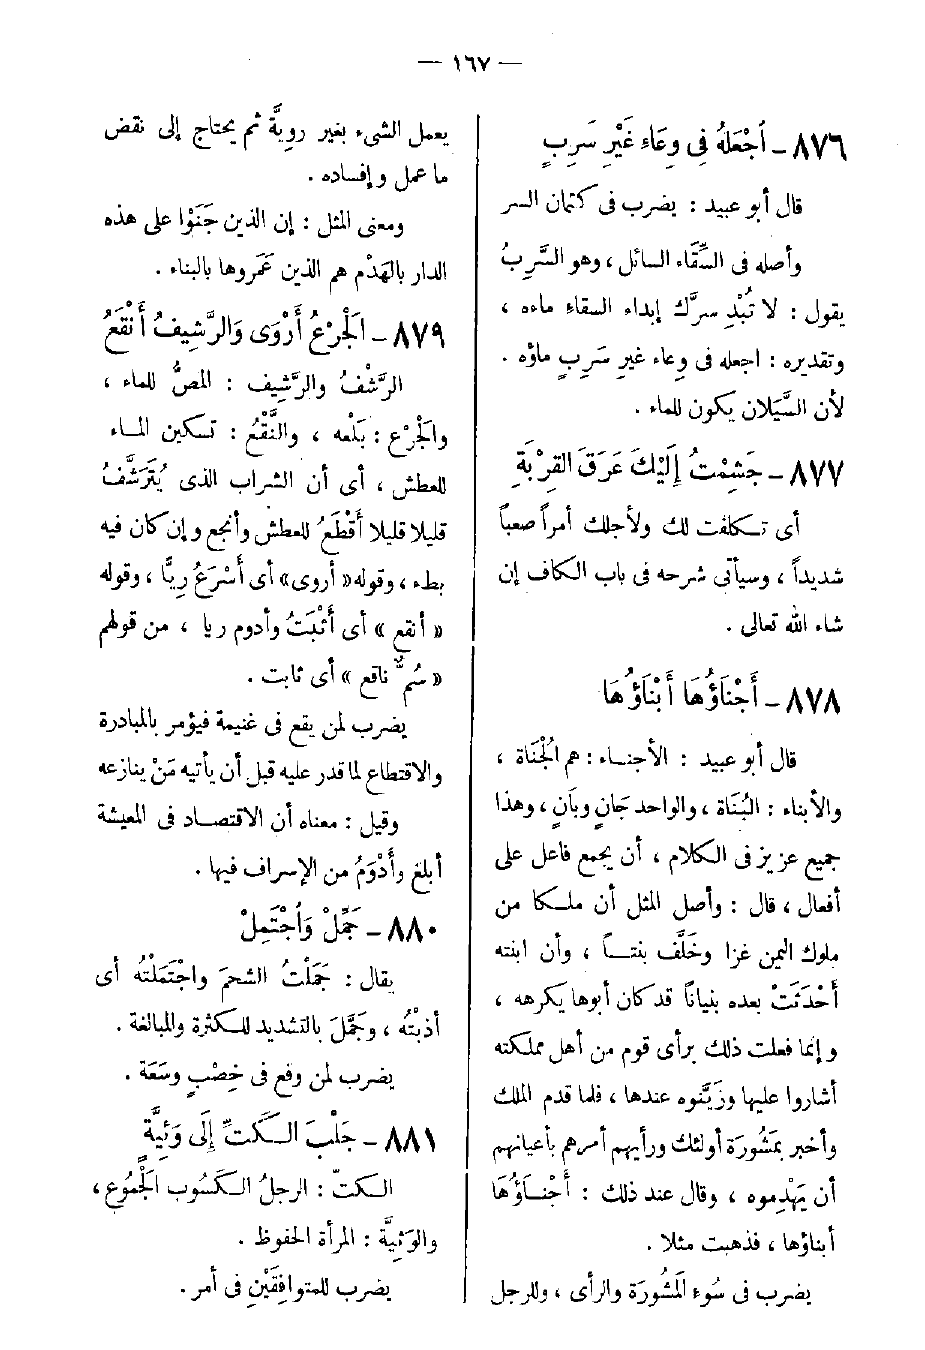 — ١٦٧ —
٨٧٦ ـ اَجْعَلْهُ فِى وِعَاءٍ غَيْرِ سَرِبٍ
قال أبو عبيد : يضرب فى كتمان السر
وأصله فى السِّقَاء السائل ، وهو السَّرِبُ
يقول : لا تُبْدِ سرَّك إبداء السقاءِ ماءه ،
وتقديره : اجعله فى وِعاء غيرِ سَرِبٍ ماؤه .
لأن السَّيَلان يكون للماء .
٨٧٧ ـ جَشِمْتُ إِلَيْكَ عَرَقَ القِرْبَةِ
أى تـكلفت لك ولأجلك أمراً صعباً
شديداً ، وسيأتى شرحه فى باب الكاف إن
شاء الله تعالى .
٨٧٨ ـ أَجْنَاؤُهَا أَبْنَاؤُهَا
قال أبو عبيد : الأجنـاء : هم الجُنَاة ،
والأبناء : البُنَاة ، والواحد جَانٍ وبَانٍ ، وهذا
جميع عزيز فى الكلام ، أن يجمع فاعل على
أفعال ، قال : وأصل المثل أن ملـكا من
ملوك اليمن غزا وخَلَّف بنتـاً ، وأن ابنته
أَحْدَثَتْ بعده بنياناً قد كان أبوها يكرهه ،
وإنما فعلت ذلك برأى قوم من أهل مملكته
أشاروا عليها وزَيَّنوه عندها ، فلما قدم الملك
وأخبر بمَشُورَة أولئك ورأيهم أمرهم بأعيانهم
أن يَهْدِموه ، وقال عند ذلك : أَجْنـاؤُهَا
أبناؤها ، فذهبت مثلا .
يضرب فى سُوء المَشُورَة والرأى ، وللرجل
يعمل الشىء بغير رويَّة ثم يحتاج إلى نقض
ما عمل وإفساده .
ومعنى المثل : إن الذين جَنَوْا على هذه
الدار بالهَدْم هم الذين عَمَروها بالبناء .
٨٧٩ ـ الجَرْعُ أَرْوَى وَالرَّشِيفُ أَنْقَعُ
الرَّشْفُ والرَّشِيف : المصُّ للماء ،
والجَرْع : بَلْعه ، والنَّقْعُ : تسكين المـاء
للعطش ، أى أن الشراب الذى يُتَرَشَّفُ
قليلا قليلا أَقْطَعُ للعطش وأنجع وإن كان فيه
بطء ، وقوله « أروى » أى أَسْرَعُ رِيًّا ، وقوله
« أنقع » أى أَثْبَتُ وأدوم ريا ، من قولهم
« سُمٌّ ناقع » أى ثابت .
يضرب لمن يقع فى غنيمة فيؤمر بالمبادرة
والاقتطاع لما قدر عليه قبل أن يأتيه مَنْ ينازعه
وقيل : معناه أن الاقتصـاد فى المعيشة
أبلغ وأَدْوَمُ من الإسراف فيها .
٨٨٠ ـ جَمِّلْ وَاجْتَمِلْ
يقال : جَمَلْتُ الشحمَ واجْتَمَلْتُه أى
أذبْتُه ، وجَمَّلَ بالتشديد للـكثرة والمبالغة .
يضرب لمن وقع فى خِصْبٍ وسَعَة .
٨٨١ ـ جَلْبَ الـكَتِّ إلَى وَئِيَّةٍ
الـكتّ : الرجلُ الـكَسُوب الجَمُوع ،
والوَئِيَّة : المرأة الحفوظ .
يضرب للمتوافِقَيْنِ فى أمر .